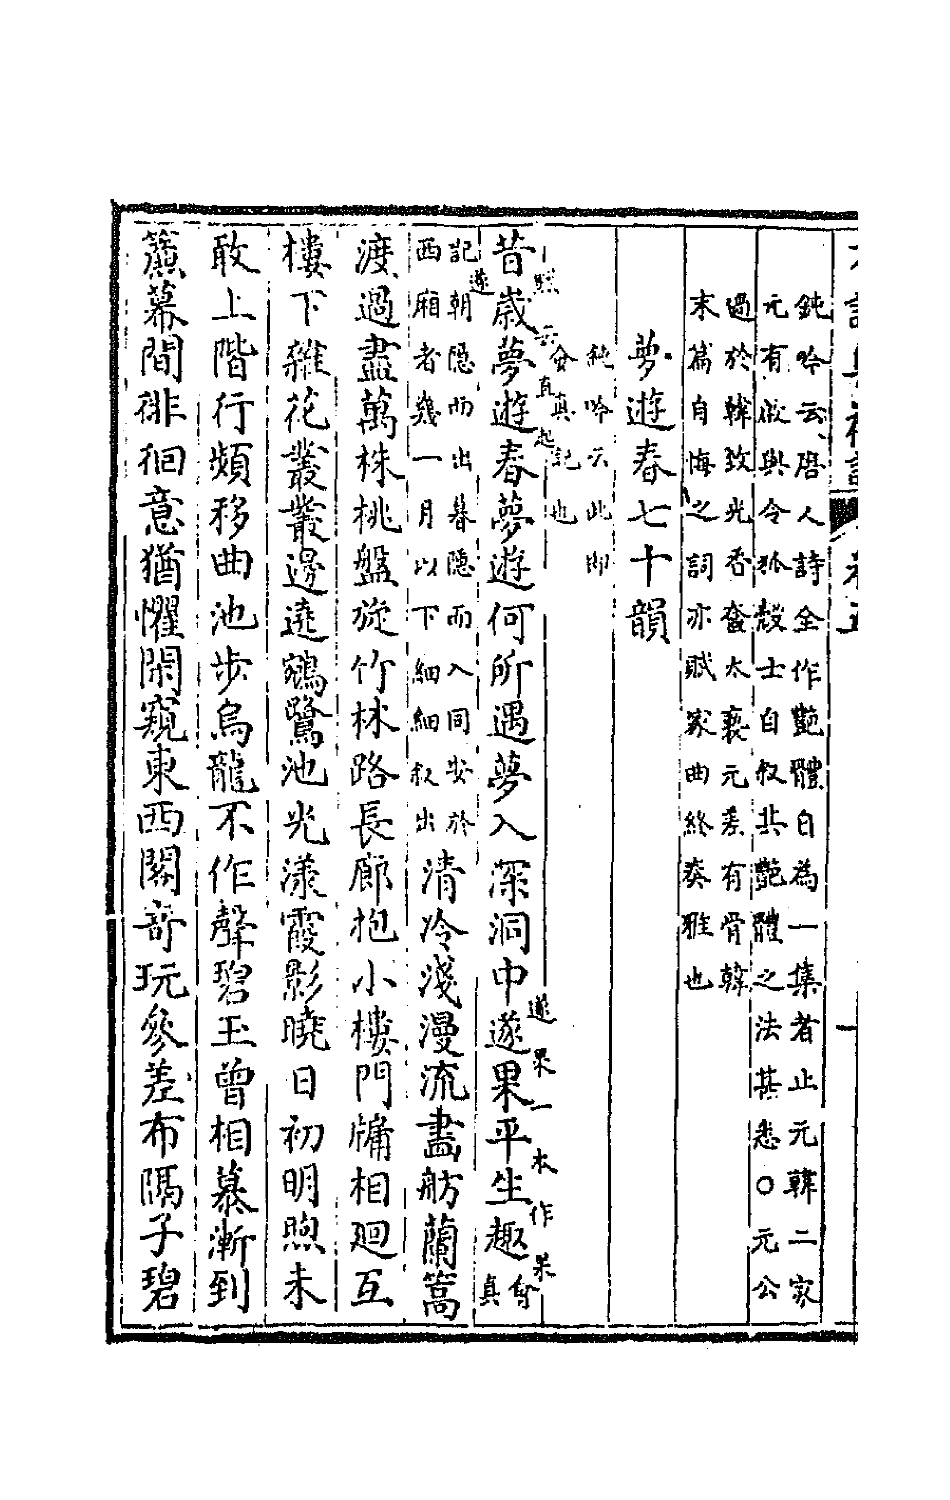 鈍吟云唐人詩全作艷體自為一集者止元韓二家
元有敘與令狐殼士自叙其艷體之法甚悉○元公
過於韓致光香奩太䙝元差有骨韓
末篇自悔之詞亦賦家曲終奏雅也
夢遊春七十韻
鈍吟云此即
會真記也
昔歳夢遊春夢遊何所遇夢入深洞中遂果平生趣會真
遂果一本作果遂
記朝隱而出暮隱而入同安於
西廂者幾一月以下細細叙出
清冷淺漫流畫舫蘭篙
渡過盡萬株桃盤旋竹林路長廊抱小樓門牗相廻互
樓下雜花叢叢邊遶鵷鷺池光漾霞影曉日初明煦未
敢上階行頻移曲池步烏龍不作聲碧玉曾相慕漸到
簾幕間徘徊意猶懼閑窺東西閣奇玩參差布隔子碧